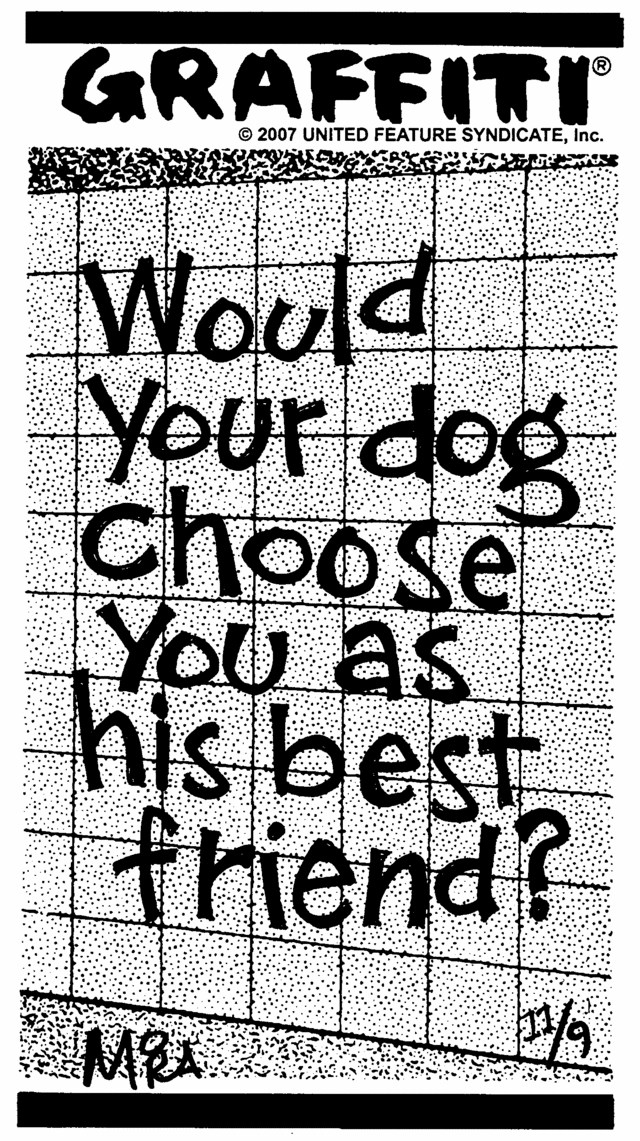 GRAFFITI®
© 2007 UNITED FEATURE SYNDICATE, Inc.
Would
your dog
choose
you as
his best
friend?
11/9
MORA